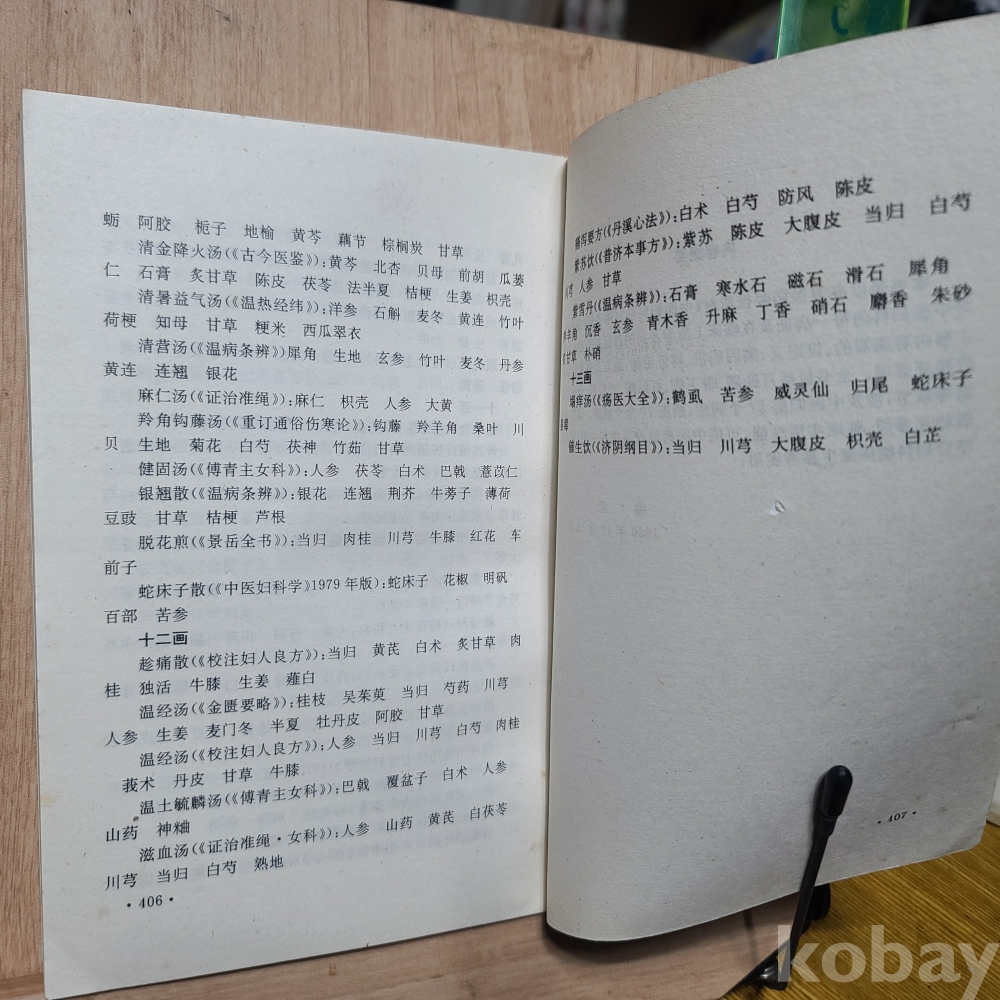 蛎 阿胶 栀子 地榆 黄芩 藕节 棕榈炭 甘草
清金降火汤(《古今医鉴》):黄芩 北杏 贝母 前胡 瓜蒌
仁 石膏 炙甘草 陈皮 茯苓 法半夏 桔梗 生姜 枳壳
清暑益气汤(《温热经纬》):洋参 石斛 麦冬 黄连 竹叶
荷梗 知母 甘草 粳米 西瓜翠衣
清营汤(《温病条辨》)犀角 生地 玄参 竹叶 麦冬 丹参
黄连 连翘 银花
麻仁汤(《证治准绳》):麻仁 枳壳 人参 大黄
羚角钩藤汤(《重订通俗伤寒论》):钩藤 羚羊角 桑叶 川
贝 生地 菊花 白芍 茯神 竹茹 甘草
健固汤(《傅青主女科》):人参 茯苓 白术 巴戟 薏苡仁
银翘散(《温病条辨》):银花 连翘 荆芥 牛蒡子 薄荷
豆豉 甘草 桔梗 芦根
脱花煎(《景岳全书》):当归 肉桂 川芎 牛膝 红花 车
前子
蛇床子散(《中医妇科学》1979年版):蛇床子 花椒 明矾
百部 苦参
十二画
趁痛散(《校注妇人良方》):当归 黄芪 白术 炙甘草 肉
桂 独活 牛膝 生姜 薤白
温经汤(《金匮要略》):桂枝 吴茱萸 当归 芍药 川芎
人参 生姜 麦门冬 半夏 牡丹皮 阿胶 甘草
温经汤(《校注妇人良方》):人参 当归 川芎 白芍 肉桂
莪术 丹皮 甘草 牛膝
温土毓麟汤(《傅青主女科》):巴戟 覆盆子 白术 人参
山药 神粬
滋血汤(《证治准绳·女科》):人参 山药 黄芪 白茯苓
川芎 当归 白芍 熟地
·406·
泻要方(《丹溪心法》):白术 白芍 防风 陈皮
紫苏饮(《普济本事方》):紫苏 陈皮 大腹皮 当归 白芍
芎 人参 甘草
紫雪丹(《温病条辨》):石膏 寒水石 磁石 滑石 犀角
羊角 沉香 玄参 青木香 升麻 丁香 硝石 麝香 朱砂
甘草 朴硝
十三画
塌痒汤(《疡医大全》):鹤虱 苦参 威灵仙 归尾 蛇床子
催生饮(《济阴纲目》):当归 川芎 大腹皮 枳壳 白芷
·407·
kobay